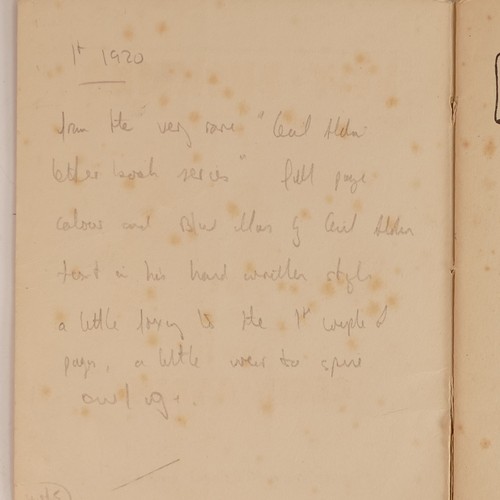 1st 1920
from the "very rare "Cecil Aldin
letter book series" full page
colour and B/W illus by Cecil Aldin
text in his hand written style
a little foxing to the 1st couple of
pages, a little wear to spine
and